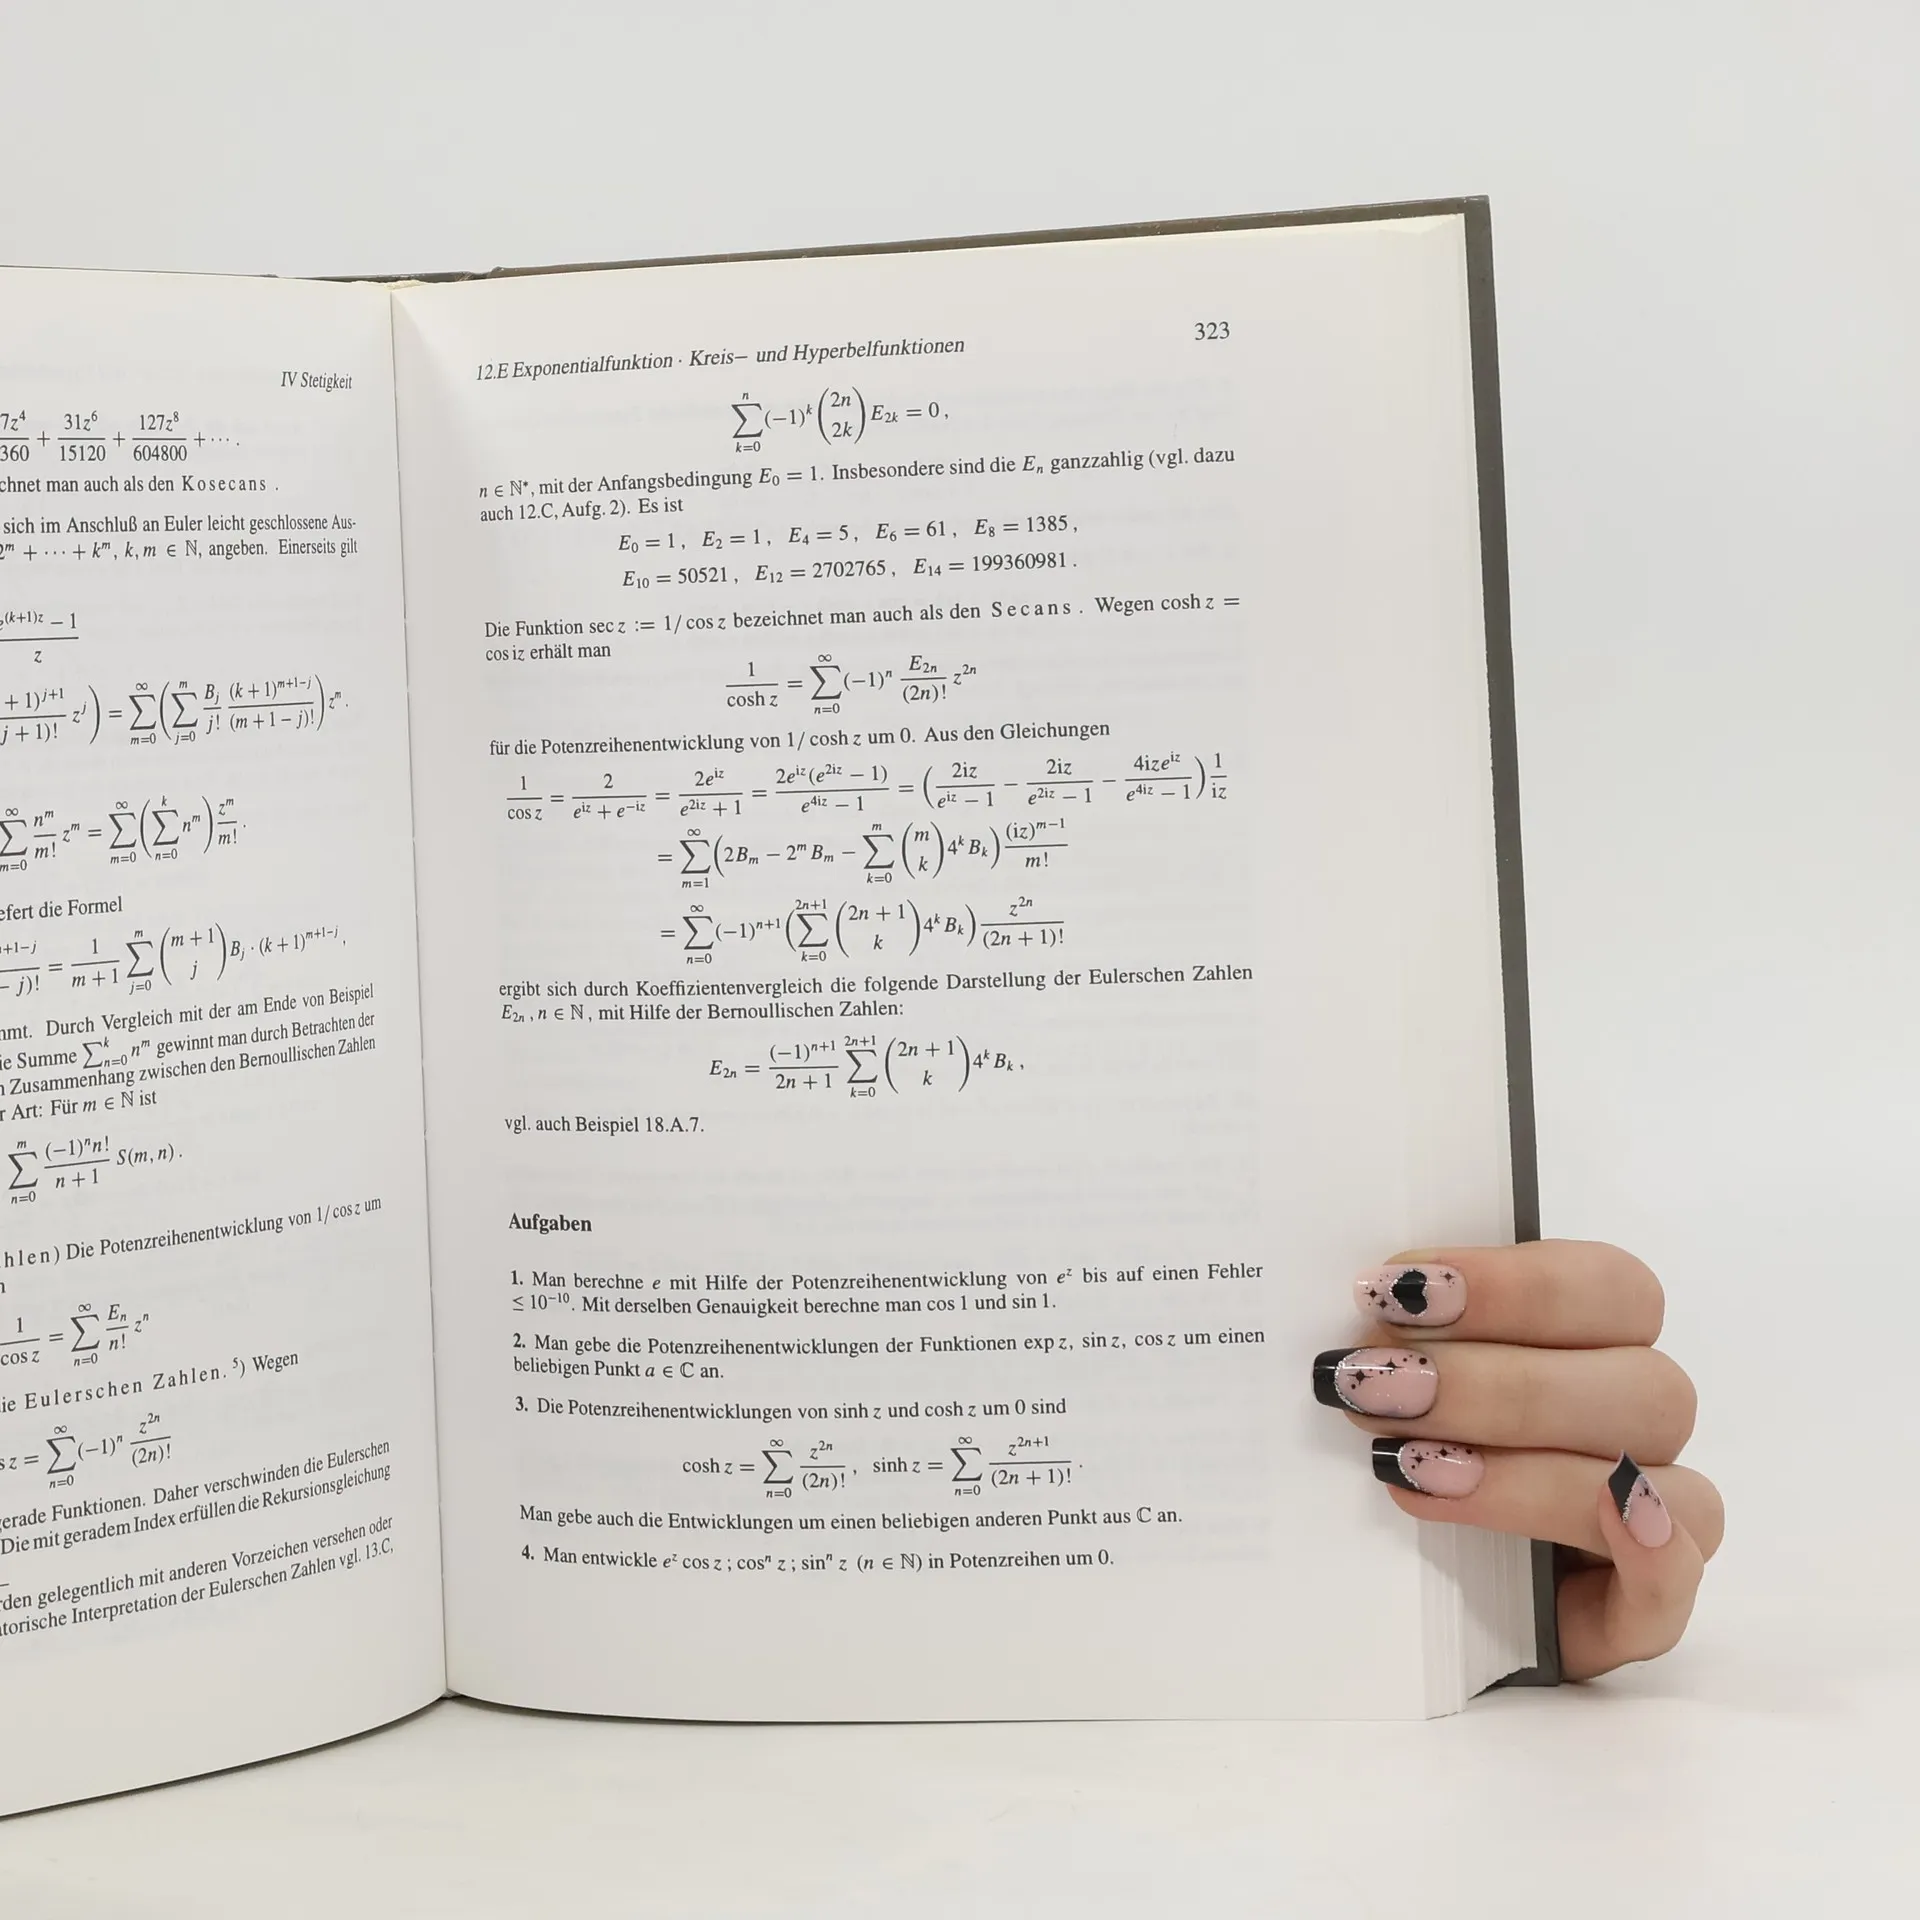 IV Stetigkeit
7z⁴/360 + 31z⁶/15120 + 127z⁸/604800 + ··· .
chnet man auch als den Kosecans .
sich im Anschluß an Euler leicht geschlossene Aus-
2ᵐ + ··· + kᵐ, k, m ∈ ℕ, angeben. Einerseits gilt
e^{(k+1)z} − 1
z
+ 1)^{j+1}/(j + 1)! z^j) = ∑_{m=0}^{∞} (∑_{j=0}^{m} B_j/j! (k + 1)^{m+1−j}/(m + 1 − j)!) z^m .
∑_{m=0}^{∞} n^m/m! z^m = ∑_{m=0}^{∞} (∑_{n=0}^{k} n^m) z^m/m! .
efert die Formel
+1−j/− j)! = 1/(m + 1) ∑_{j=0}^{m} (m + 1 über j) B_j · (k + 1)^{m+1−j} ,
mmt. Durch Vergleich mit der am Ende von Beispiel
ie Summe ∑_{n=0}^{k} n^m gewinnt man durch Betrachten der
n Zusammenhang zwischen den Bernoullischen Zahlen
r Art: Für m ∈ ℕ ist
∑_{n=0}^{m} (−1)ⁿn!/(n + 1) S(m, n) .
hlen) Die Potenzreihenentwicklung von 1/ cos z um
n
1/cos z = ∑_{n=0}^{∞} E_n/n! zⁿ
ie Eulerschen Zahlen.⁵) Wegen
s z = ∑_{n=0}^{∞} (−1)ⁿ z^{2n}/(2n)!
gerade Funktionen. Daher verschwinden die Eulerschen
Die mit geradem Index erfüllen die Rekursionsgleichung
rden gelegentlich mit anderen Vorzeichen versehen oder
atorische Interpretation der Eulerschen Zahlen vgl. 13.C,
12.E Exponentialfunktion · Kreis– und Hyperbelfunktionen 323
∑_{k=0}^{n} (−1)^k (2n über 2k) E_{2k} = 0 ,
n ∈ ℕ*, mit der Anfangsbedingung E₀ = 1. Insbesondere sind die E_n ganzzahlig (vgl. dazu
auch 12.C, Aufg. 2). Es ist
E₀ = 1 , E₂ = 1 , E₄ = 5 , E₆ = 61 , E₈ = 1385 ,
E₁₀ = 50521 , E₁₂ = 2702765 , E₁₄ = 199360981 .
Die Funktion sec z := 1/ cos z bezeichnet man auch als den Secans . Wegen cosh z =
cos iz erhält man
1/cosh z = ∑_{n=0}^{∞} (−1)ⁿ E_{2n}/(2n)! z^{2n}
für die Potenzreihenentwicklung von 1/ cosh z um 0. Aus den Gleichungen
1/cos z = 2/(e^{iz} + e^{−iz}) = 2e^{iz}/(e^{2iz} + 1) = 2e^{iz}(e^{2iz} − 1)/(e^{4iz} − 1) = (2iz/(e^{iz} − 1) − 2iz/(e^{2iz} − 1) − 4ize^{iz}/(e^{4iz} − 1)) 1/iz
= ∑_{m=1}^{∞} (2B_m − 2^m B_m − ∑_{k=0}^{m} (m über k) 4^k B_k) (iz)^{m−1}/m!
= ∑_{n=0}^{∞} (−1)^{n+1} (∑_{k=0}^{2n+1} (2n + 1 über k) 4^k B_k) z^{2n}/(2n + 1)!
ergibt sich durch Koeffizientenvergleich die folgende Darstellung der Eulerschen Zahlen
E_{2n} , n ∈ ℕ , mit Hilfe der Bernoullischen Zahlen:
E_{2n} = (−1)^{n+1}/(2n + 1) ∑_{k=0}^{2n+1} (2n + 1 über k) 4^k B_k ,
vgl. auch Beispiel 18.A.7.
Aufgaben
1. Man berechne e mit Hilfe der Potenzreihenentwicklung von e^z bis auf einen Fehler
≤ 10⁻¹⁰. Mit derselben Genauigkeit berechne man cos 1 und sin 1.
2. Man gebe die Potenzreihenentwicklungen der Funktionen exp z, sin z, cos z um einen
beliebigen Punkt a ∈ ℂ an.
3. Die Potenzreihenentwicklungen von sinh z und cosh z um 0 sind
cosh z = ∑_{n=0}^{∞} z^{2n}/(2n)! , sinh z = ∑_{n=0}^{∞} z^{2n+1}/(2n + 1)! .
Man gebe auch die Entwicklungen um einen beliebigen anderen Punkt aus ℂ an.
4. Man entwickle e^z cos z ; cosⁿ z ; sinⁿ z (n ∈ ℕ) in Potenzreihen um 0.